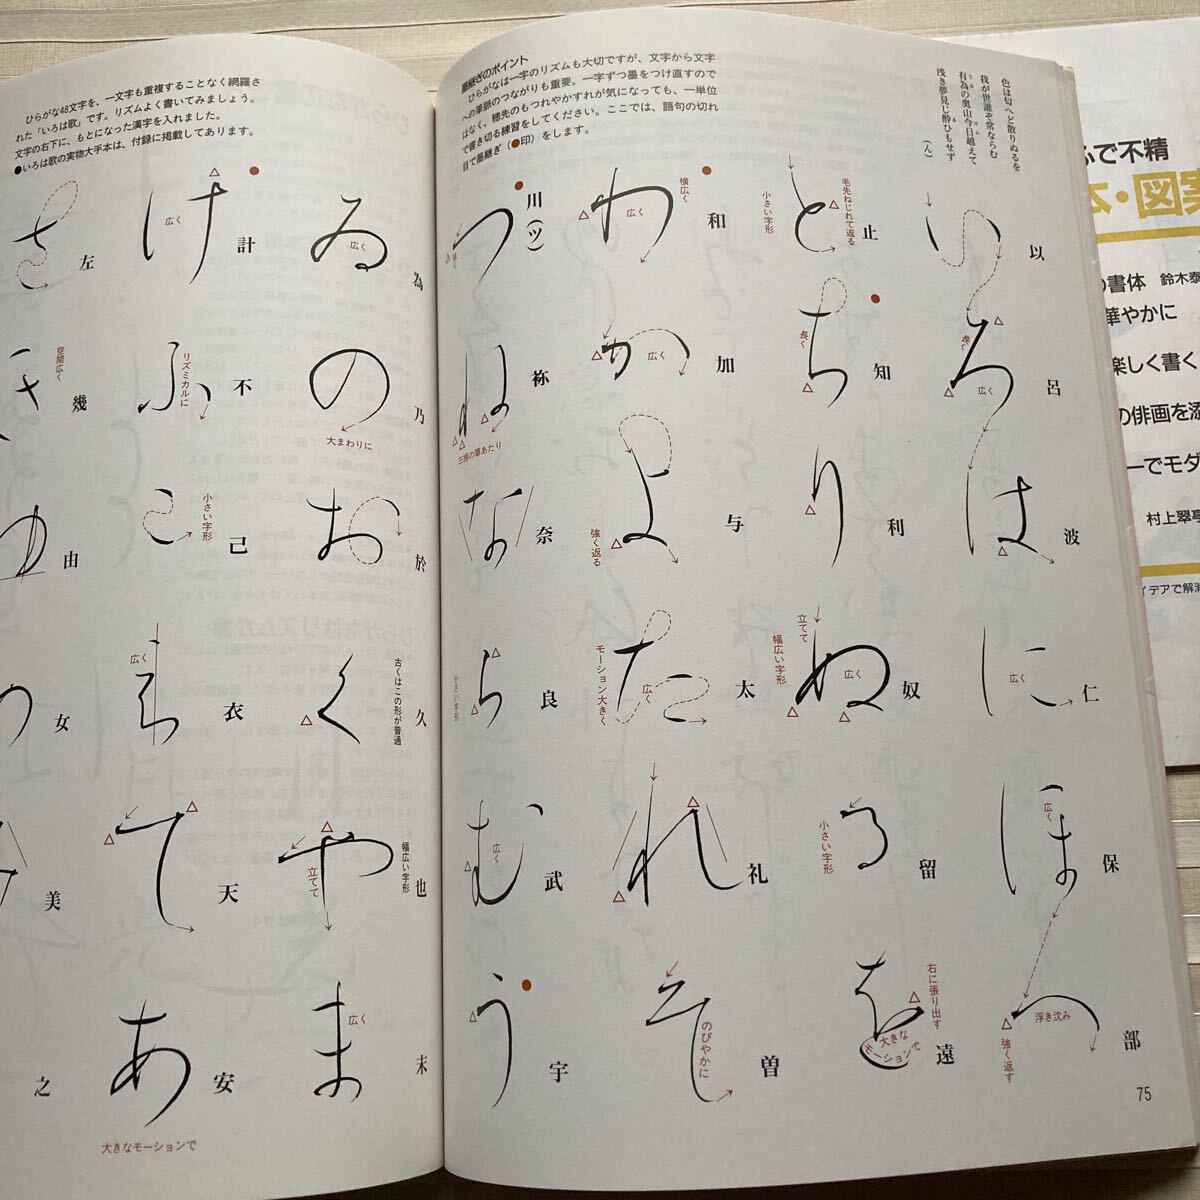 色は匂へど散りぬるを
我が世誰ぞ常ならむ
有為の奥山今日越えて
浅き夢見じ酔ひもせず
(ん)
墨継ぎのポイント
ひらがなは一字のリズムも大切ですが、文字から文字
への筆脈のつながりも重要。一字ずつ墨をつけ直すので
はなく、穂先のもつれやかすれが気になっても、一単位
で書き切る練習をしてください。ここでは、語句の切れ
目で墨継ぎ(●印)をします。
い 以
ろ 呂
逆く
広く
は 波
に 仁
広く
ほ 保
広く
へ 部
浮き沈み
強く返す
と 止
毛先ねじれて返る
小さい字形
ち 知
長く
り 利
ぬ 奴
立てて
幅広い字形
広く
る 留
小さい字形
を 遠
右に張り出す
大きな
モーションで
わ 和
横広く
広く
か 加
広く
よ 与
強く返る
た 太
モーション大きく
広く
れ 礼
そ 曽
のびやかに
つ 川(ツ)
ね 祢
三種の筆あたり
な 奈
ら 良
小さい字形
む 武
広く
う 宇
75
ひらがな48文字を、一文字も重複することなく網羅さ
れた「いろは歌」です。リズムよく書いてみましょう。
文字の右下に、もとになった漢字を入れました。
●いろは歌の実物大手本は、付録に掲載してあります。
ゐ 為
広く
の 乃
大まわりに
お 於
く 久
古くはこの形が普通
や 也
幅広い字形
立てて
ま 末
広く
け 計
広く
ふ 不
リズミカルに
こ 己
小さい字形
え 衣
広く
て 天
あ 安
大きなモーションで
さ 左
き 幾
空間広く
ゆ 由
め 女
み 美
之
ふで不精
本・図案
の書体 鈴木泰
華やかに
楽しく書く
の俳画を添
ーでモダ
村上翠亭
イデアで解消